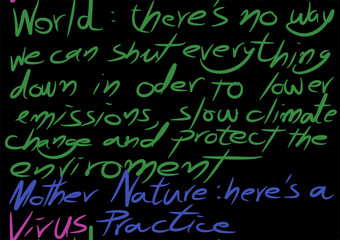 World: there's no way
we can shut everything
down in oder to lower
emissions, slow climate
change and protect the
enviroment
Mother Nature: here's a
Virus Practice